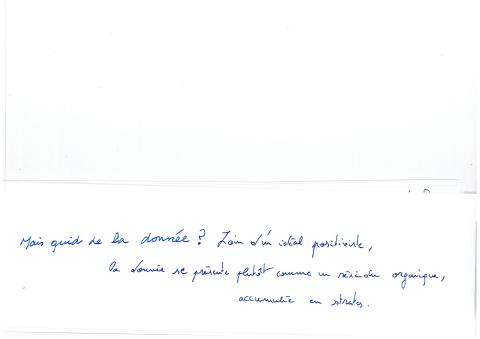 Mais quid de la donnée ? Loin d'un idéal positiviste,
la donnée se présente plutôt comme un résidu organique,
accumulée en strates.